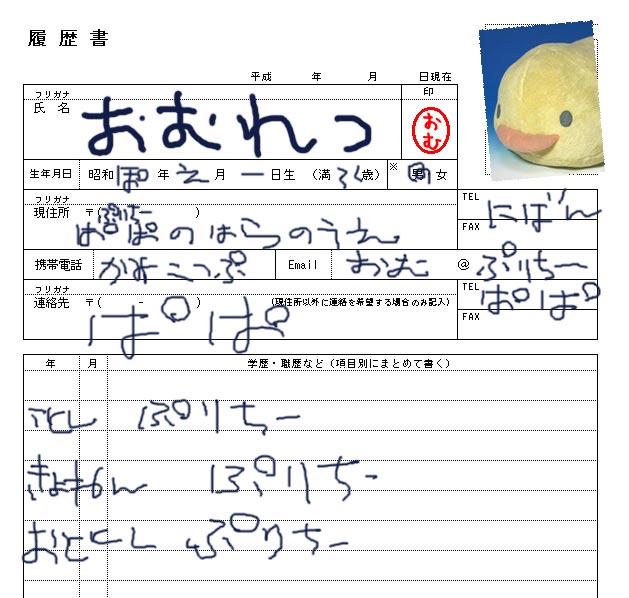 履歴書
平成 年 月 日現在
フリガナ
氏名 おむれつ
印
おむ
生年月日 昭和 ぽ 年 え 月 一 日生 (満 ろく 歳) ※ 男 女
フリガナ
現住所 〒( ぷりちー )
ぱぱのはらのうえ
TEL にばん
FAX
携帯電話 かみこっぷ Email おむ @ ぷりちー
フリガナ
連絡先 〒( - ) (現住所以外に連絡を希望する場合のみ記入)
ぱぱ
TEL ぱぱ
FAX
年 月 学歴・職歴など(項目別にまとめて書く)
ことし ぷりちー
きょねん ぷりちー
おととし ぷりちー